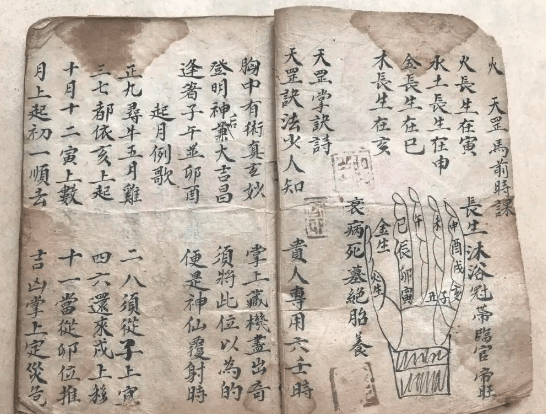 火 天罡馬前時課
火長生在寅 長生沐浴冠帶臨官帝旺
水土長生在申
金長生在巳
木長生在亥 衰病死墓絕胎養
申酉戌亥
未
午
巳辰卯寅
丑子
金生
天罡掌訣詩
天罡訣法少人知 貴人專用六壬時
胸中有術真玄妙 掌上藏機盡出奇
登明神后大吉昌 須將此位以為的
逢着子午並卯酉 便是神仙覆射時
起月例歌
正九尋牛五月雞 二八須從子上寅
三七都依亥上起 四六還來戌上移
十月十二寅上數 十一當從卯位推
月上起初一順去 吉凶掌上定災